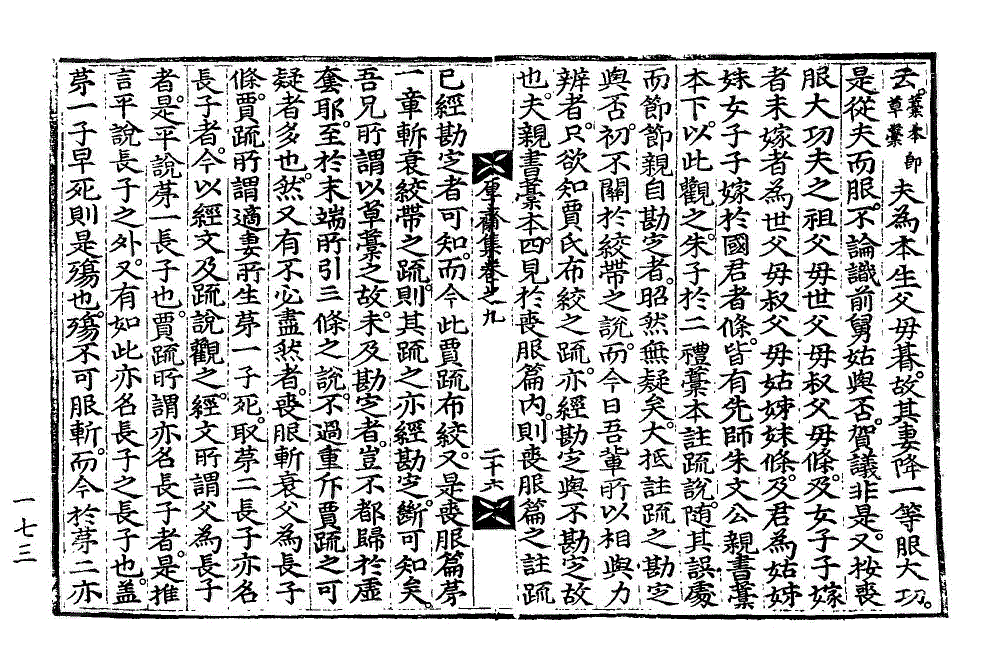 云。藁本卽草藁 夫為本生父母朞。故其妻降一等服大功。
是從夫而服。不論識前舅姑與否。賀議非是。又按喪
服大功夫之祖父母世父母叔父母條。及女子子嫁
者未嫁者為世父母叔父母姑姊妹條。及君為姑姊
妹女子子嫁於國君者條。皆有先師朱文公親書藁
本下。以此觀之。朱子於二禮藁本註疏說。隨其誤處
而節節親自勘定者。昭然無疑矣。大抵註疏之勘定
與否。初不關於絞帶之說。而今日吾輩所以相與力
辨者。只欲知賈氏布絞之疏。亦經勘定與不勘定故
也。夫親書藁本。四見於喪服篇內。則喪服篇之註疏
厚齋集卷之九
二十六
已經勘定者可知。而今此賈疏布絞。又是喪服篇第
一章斬衰絞帶之疏。則其疏之亦經勘定。斷可知矣。
吾兄所謂以草藁之故。未及勘定者。豈不都歸於虛
套耶。至於末端所引三條之說。不過重斥賈疏之可
疑者多也。然又有不必盡然者。喪服斬衰父為長子
條。賈疏所謂適妻所生第一子死。取第二長子亦名
長子者。今以經文及疏說觀之。經文所謂父為長子
者。是平說第一長子也。賈疏所謂亦名長子者。是推
言平說長子之外。又有如此亦名長子之長子也。盖
第一子早死則是殤也。殤不可服斬。而今於第二亦
一七三